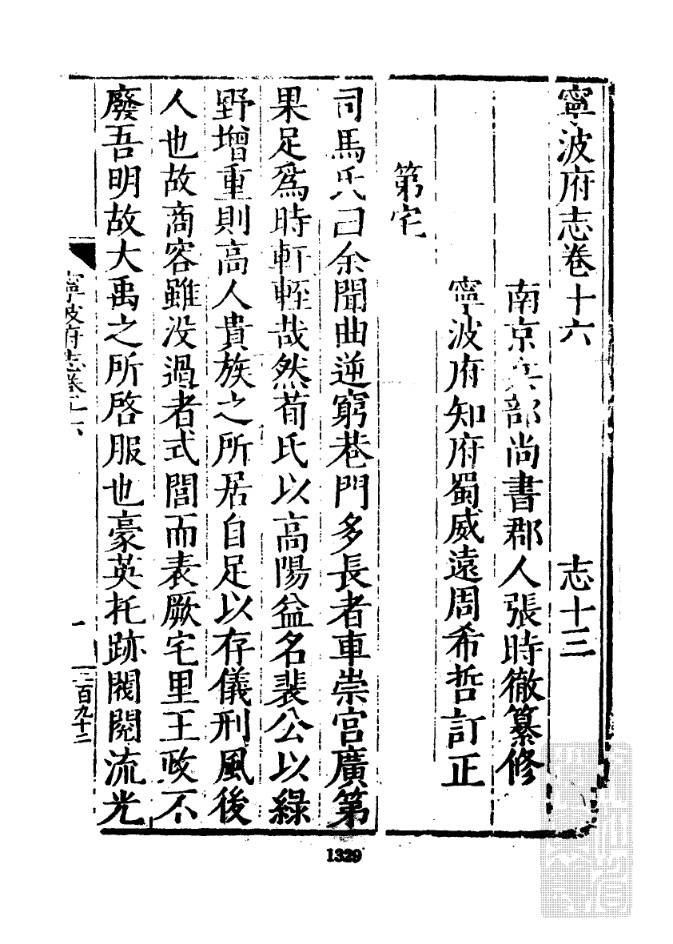 寧波府志卷十六　志十三
南京兵部尚書郡人張時徹纂修
寧波府知府蜀威遠周希哲訂正
第宅
司馬氏曰余聞曲逆窮巷門多長者車崇宫廣第
果足爲時軒輊哉然荀氏以高陽益名裴公以綠
野增重則高人貴族之所居自足以存儀刑風後
人也故商容雖没過者式閭而表厥宅里王政不
廢吾明故大禹之所啓服也豪英托跡閥閱流光
寧波府志卷十六
一
二百九十二
1329